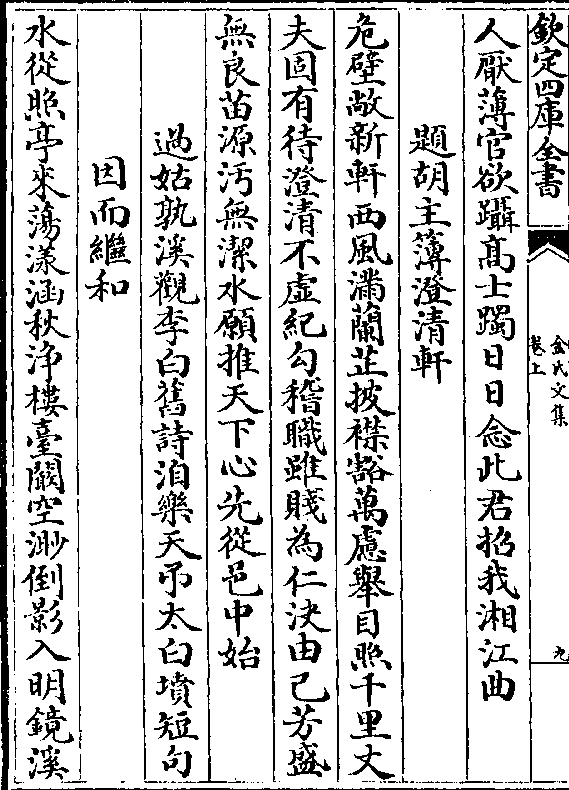 欽定四庫全書
金氏文集
卷上
九
人厭薄官欲躡高士躅日日念此君招我湘江曲
題胡主薄澄清軒
危壁敞新軒西風滿蘭芷披襟豁萬慮舉目照千里丈
夫固有待澄清不虛紀勾稽職雖賤為仁決由己芳盛
無良苗源汚無潔水願推天下心先從邑中始
過姑孰溪觀李白舊詩洎樂天弔太白墳短句
因而繼和
水從照亭來蕩漾涵秋浄樓臺闞空渺倒影入明鏡溪